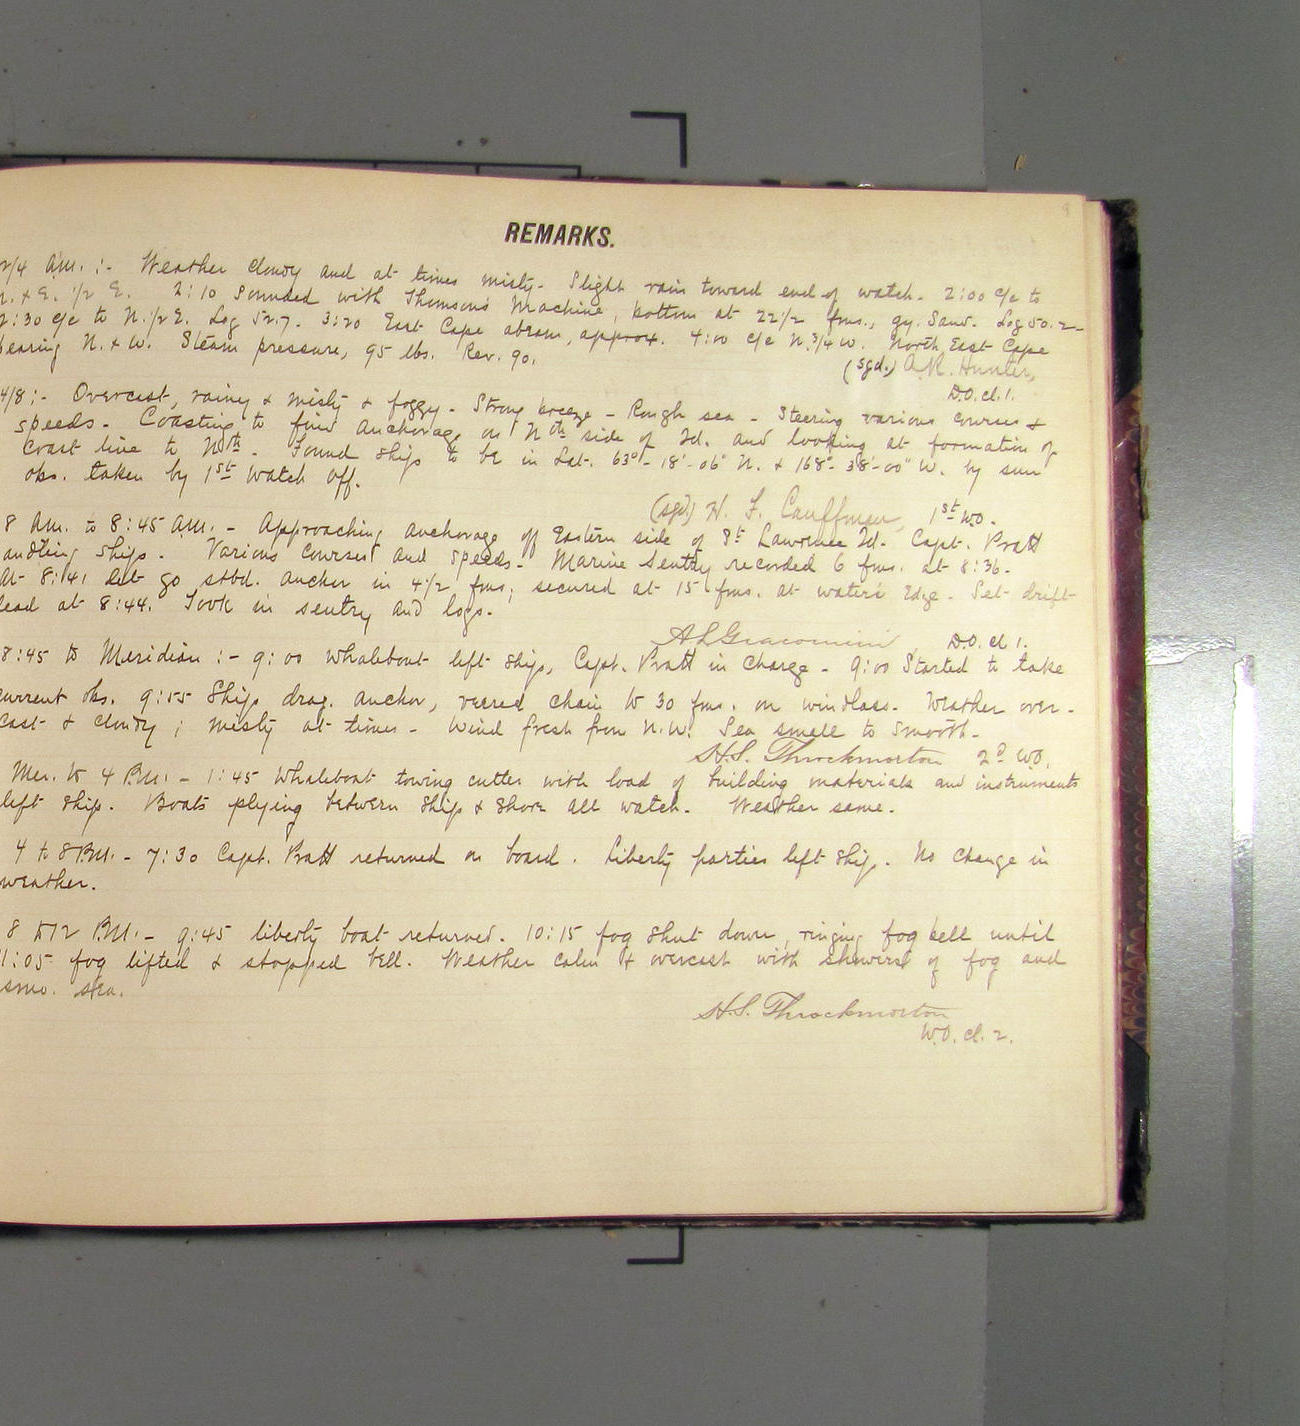 REMARKS.
2/4 A.M. :- Weather cloudy and at times misty. Slight rain toward end of watch. 2:00 c/c to
N. & E. 1/2 E. 2:10 Sounded with Thomson's Machine, bottom at 22 1/2 fms., gy. Sand. Log 50.2-
2:30 c/c to N. 1/2 E. Log 52.7. 3:20 East Cape abeam, approx. 4:00 c/c N. 3/4 W. North East Cape
bearing N. & W. Steam pressure, 95 lbs. Rev. 90.
(sgd.) A.R. Hunter,
D.O. cl. 1.
4/8 :- Overcast, rainy & misty & foggy - Strong breeze - Rough sea - Steering various courses &
speeds - Coasting to find anchorage on Nth side of Id. and looking at formation of
coast line to Nth - Found ship to be in Lat. 63° - 18' - 06" N. & 168° - 38' - 00" W. by sun
obs. taken by 1st watch off.
(sgd) H. F. Cauffman, 1st W.O.
8 AM. to 8:45 AM. - Approaching anchorage off Eastern side of St Lawrence Id. Capt. Pratt
andling ship. Various courses and speeds - Marine Sentry recorded 6 fms. at 8:36.
At 8:41 Let go stbd. anchor in 4 1/2 fms; secured at 15 fms. at water's Edge. Set drift
lead at 8:44. Took in sentry and logs.
A L Giacomini D.O. cl 1.
8:45 to Meridian :- 9:00 Whaleboat left ship, Capt. Pratt in charge - 9:00 Started to take
current obs. 9:55 Ship drag. anchor, veered chain to 30 fms. on windlass. Weather over-
cast & cloudy ; misty at times - Wind fresh from N.W. Sea small to smooth.
H.S. Throckmorton 2d W.O.
Mer. to 4 P.M. - 1:45 Whaleboat towing cutter with load of building materials and instruments
left ship. Boats plying between ship & shore all watch. Weather same.
4 to 8 P.M. - 7:30 Capt. Pratt returned on board. Liberty parties left ship. No change in
weather.
8 to 12 P.M. - 9:45 liberty boat returned. 10:15 fog shut down, ringing fog bell until
11:05 fog lifted & stopped bell. Weather calm & overcast with showers of fog and
smo. sea.
H.S. Throckmorton
W.O. cl. 2.